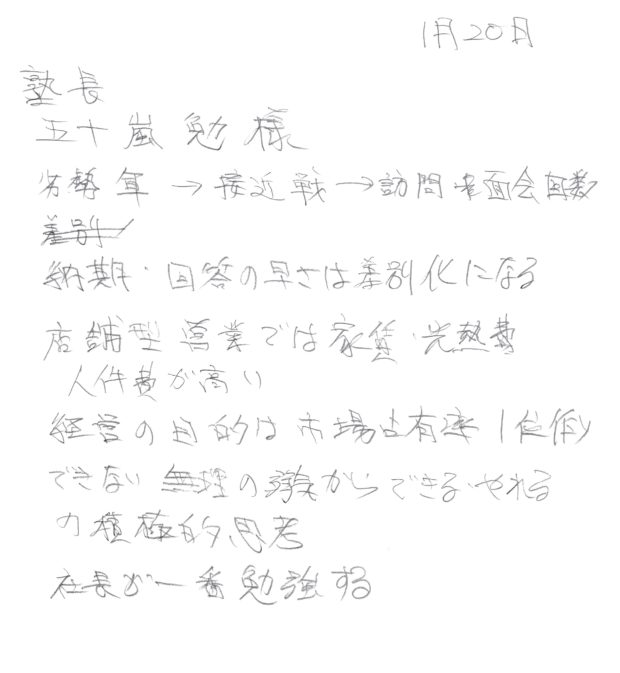 1月20日
塾長
五十嵐勉様
劣勢軍→接近戦→訪問 面会回数
差別
納期・回答の早さは差別化になる
店舗型営業では家賃・光熱費
人件費が高い
経営の目的は市場占有率1位作り
できない無理の発想からできる・やれる
の積極的思考
社長が一番勉強する